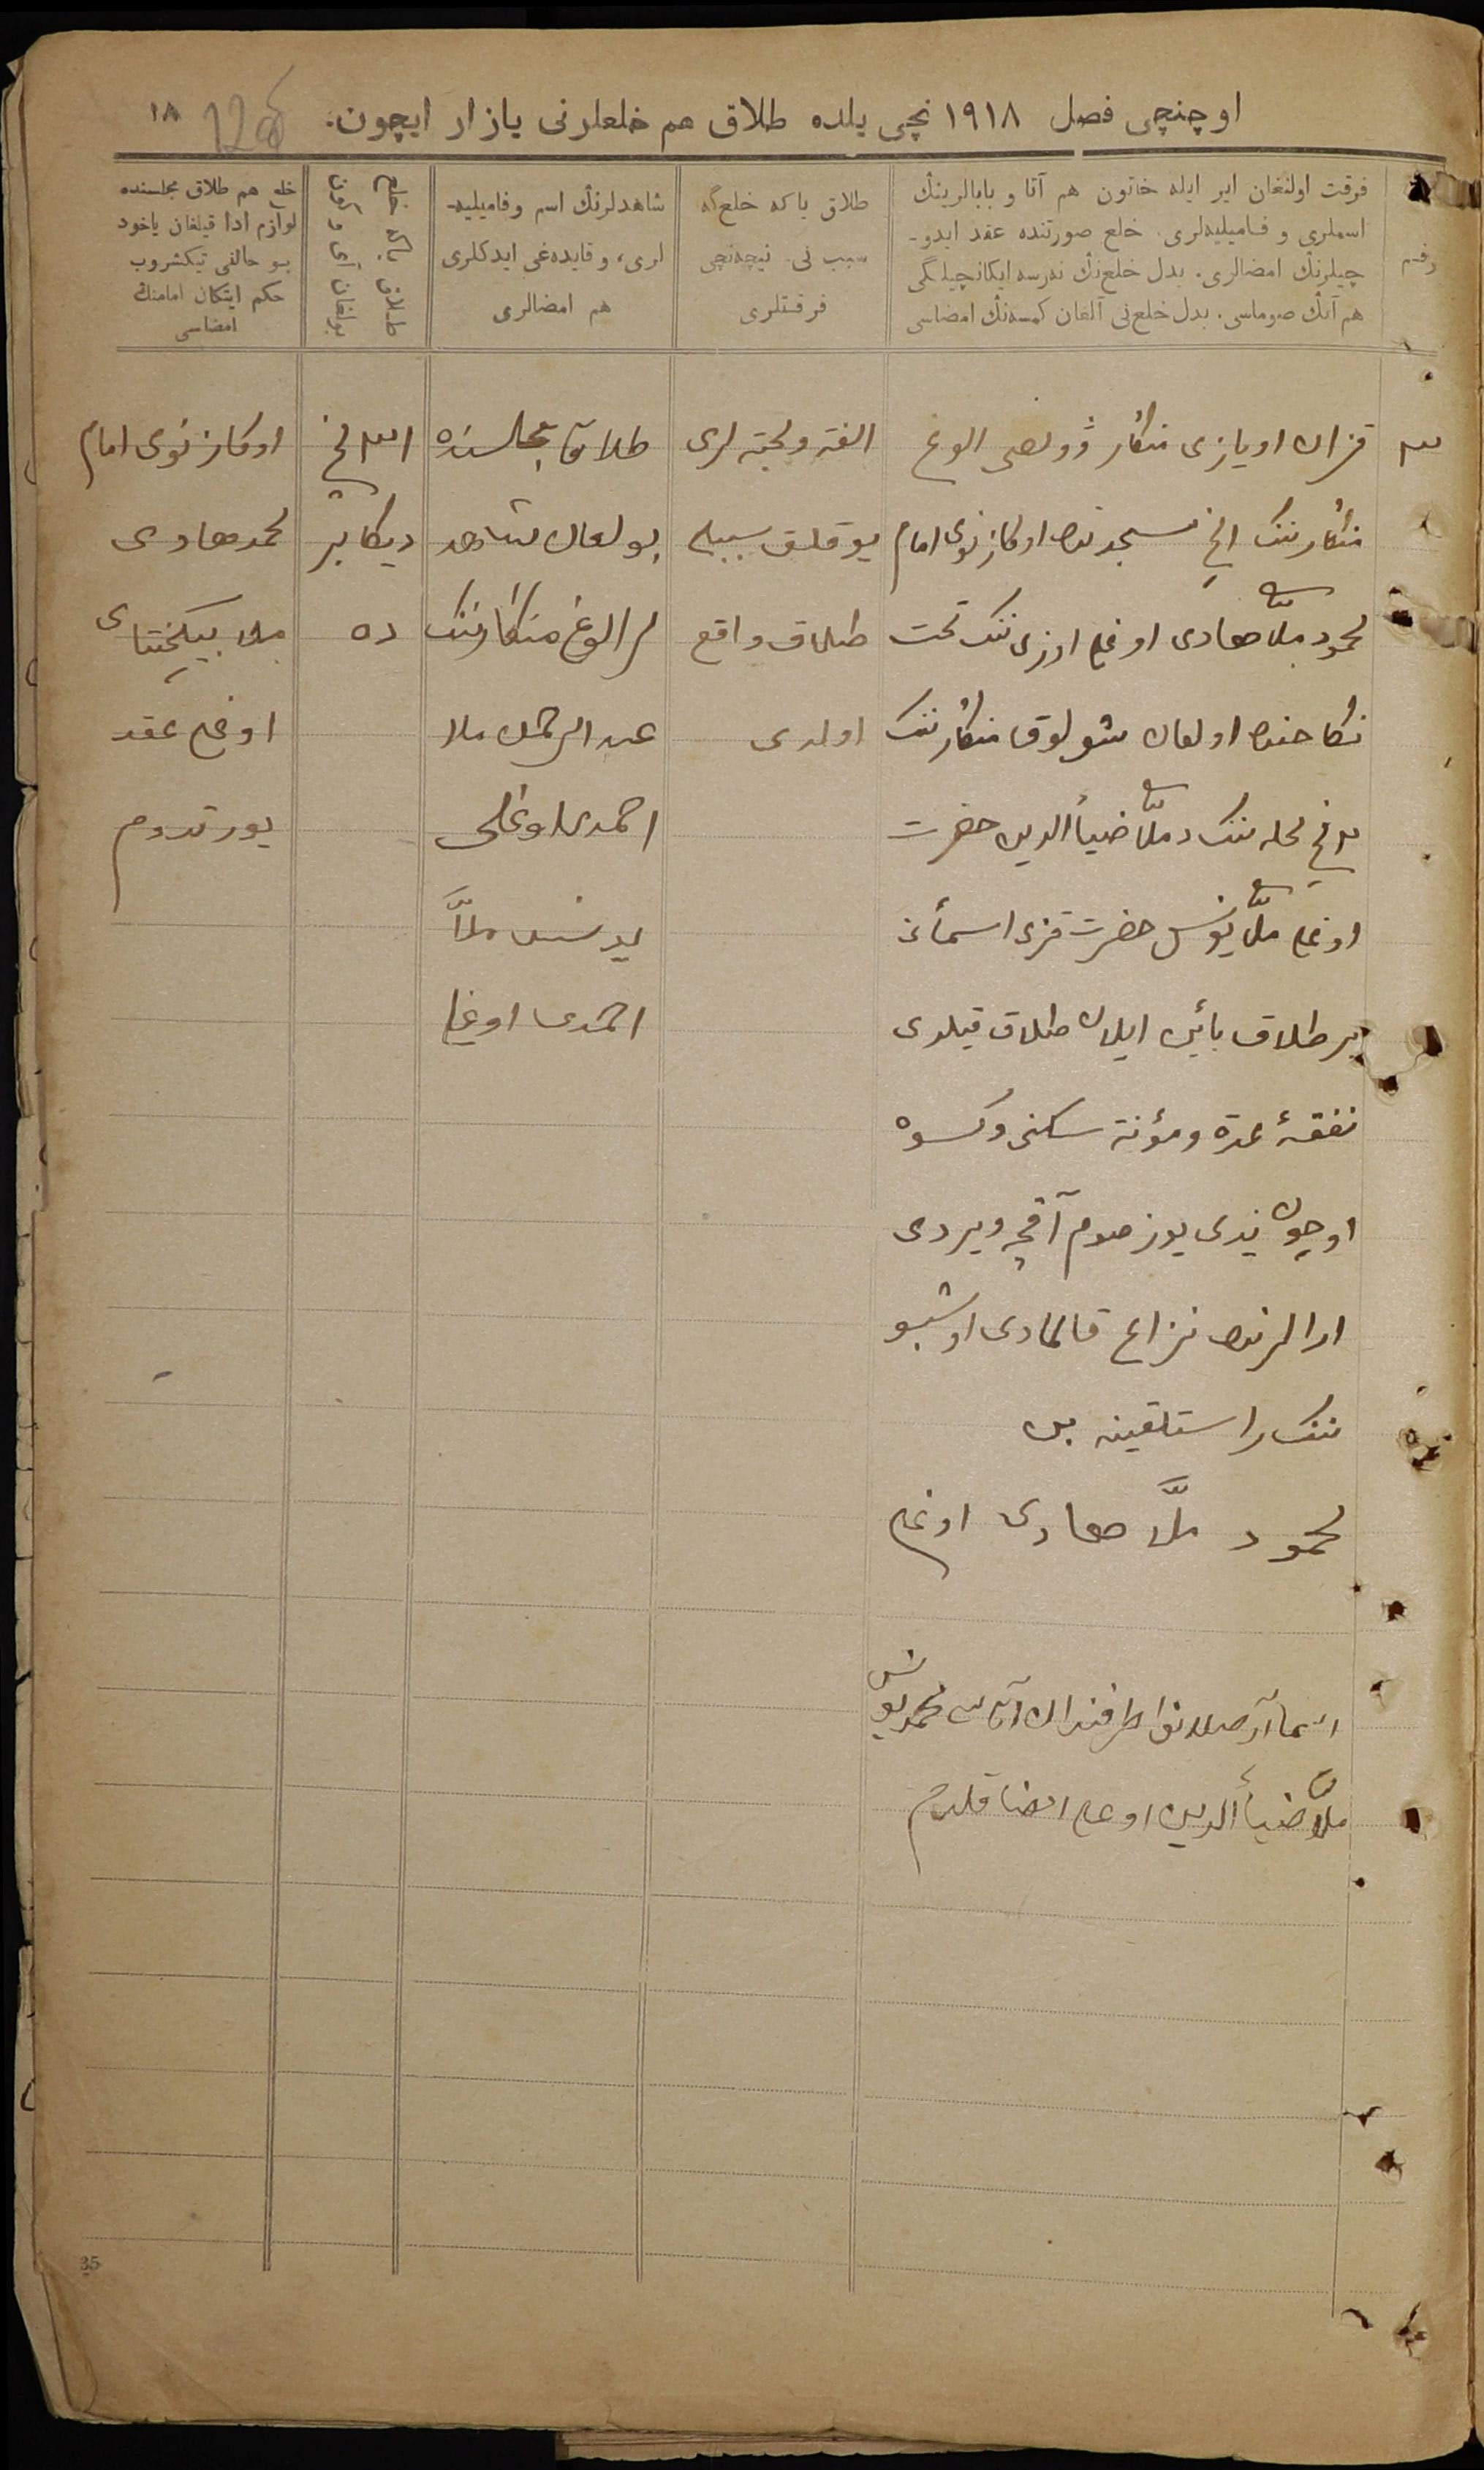 اوچنچی فصل ۱۹۱۸ نچی یلده طلاق هم خلعلرنی یازار ایچون.
۱۸
128
رقم
فرقت اولنغان ایر ایله خاتون هم آتا و بابالرینڭ
اسملری و فامیلیه‌لری. خلع صورتنده عقد ایدو-
چیلرنڭ امضالری. بدل خلع‌نڭ نه‌رسه ایکانچیلگی
هم آنڭ صوماسی. بدل خلع‌نی آلغان کمسه‌نڭ امضاسی
طلاق یا که خلع‌گه
سبب نی. نیچه‌نچی
فرقتلری
شاهدلرنڭ اسم وفامیلیه-
لری، و قایده‌غی ایدکلری
هم امضالری
طلاق یا که خلع
بولغان آی و کون
خلع هم طلاق مجلسنده
لوازم ادا قیلغان یاخود
بو حالنی تیکشروب
حکم ایتکان امامنڭ
امضاسی
۳
قزان اویازی منکار وولصی الوغ
منکارننک انچی مسجدنده اوکازنوی امام
محمود ملا هادی اوغلی اوزی ننک تحت
نکاحنده اولغان شولوق منکارننک
۲ نچی محله ننک دملا ضیاءالدین حضرت
اوغلی ملا یونس حضرت قزی اسماءنی
بر طلاق بائن ایلان طلاق قیلدی
نفقهٔ عدة ومؤنة سکنی وکسوه
اوچون یدی یوز صوم آقچه ویردی
ارالرنده نزاع قالمادی اوشبو
ننک راستلقینه بن
محمود ملا هادی اوغلی
اسماء طرفندان آتاسی محمد یونس
ملا ضیاءالدین اوغلی امضا قلدم
الفة ومحبة لری
یوقلق سببلی
طلاق واقع
اولدی
طلاق مجلسنده
بولغان شاهد
لر الوغ منکارننک
عبدالرحمن ملا
احمدی اوغلی
یونس ملا
احمدی اوغلی
۳۱ نچی
دیکابر
ده
اوکازنوی امام
محمدهادی
ملا بیکمختای
اوغلی عقد
یورتدوم
35